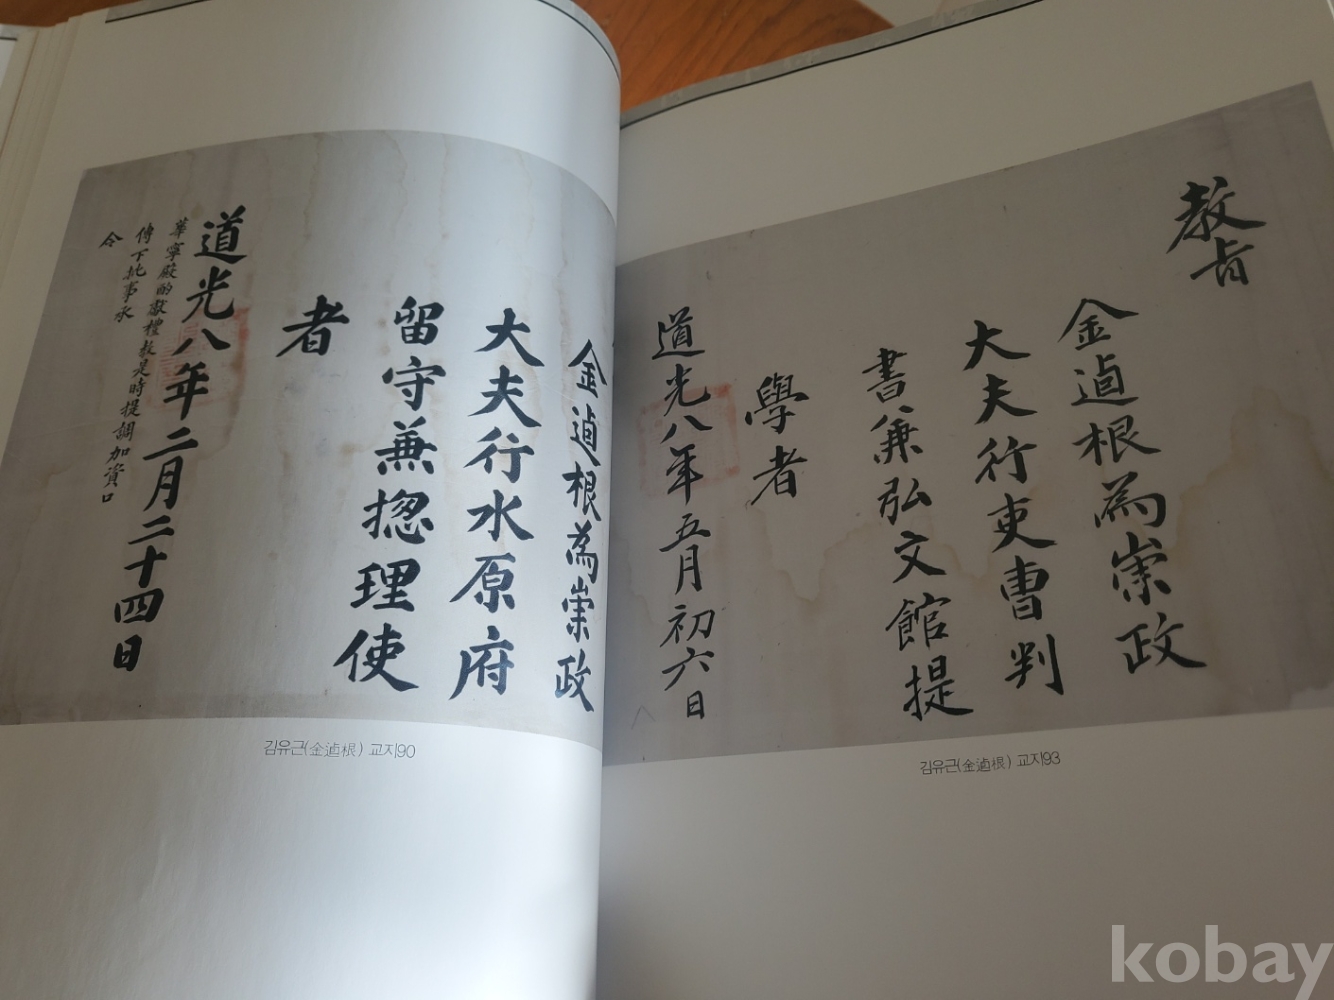 金逌根為崇政
大夫行水原府
留守兼揔理使
者
道光八年二月二十四日
華寧殿酌獻禮教是時提調加資口
傳下批事承
令
김유근(金逌根) 교지90
教旨
金逌根為崇政
大夫行吏曹判
書兼弘文館提
學者
道光八年五月初六日
김유근(金逌根) 교지93
kobay